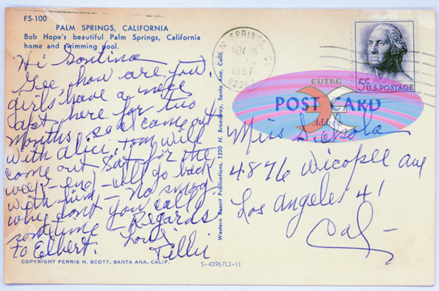 FS-100
PALM SPRINGS, CALIFORNIA
Bob Hope's beautiful Palm Springs, California
home and swimming pool.
Hi
See, how are you,
girls, have a nice
apt here for two
months, so I came out
with Alice, Tom will
come out Sat for the
week-end - will go back
with him - no smog
why don't you call
sometime - Regards
to Elbert. Love
Tillie
COPYRIGHT FERRIS H. SCOTT, SANTA ANA, CALIF.
S-43967L3-11
Western Resort Publications, 1320 N. Broadway, Santa Ana, Calif.
SPRINGS
1967
5¢ U.S. POSTAGE
POST CARD
Miss
4876 Wicopee Ave
Los Angeles 41
Cal-